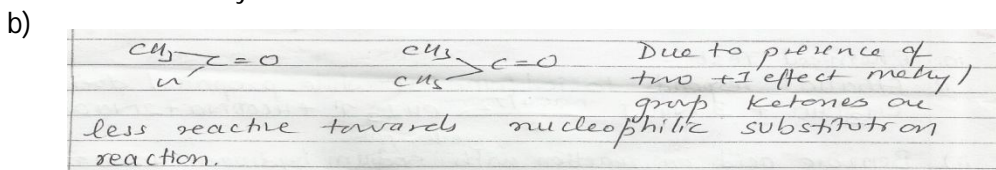 b)
CH3 C=O CH3 C=O Due to presence of
H CH3 two +I effect methyl
group ketones are
less reactive towards nucleophilic substitution
reaction.